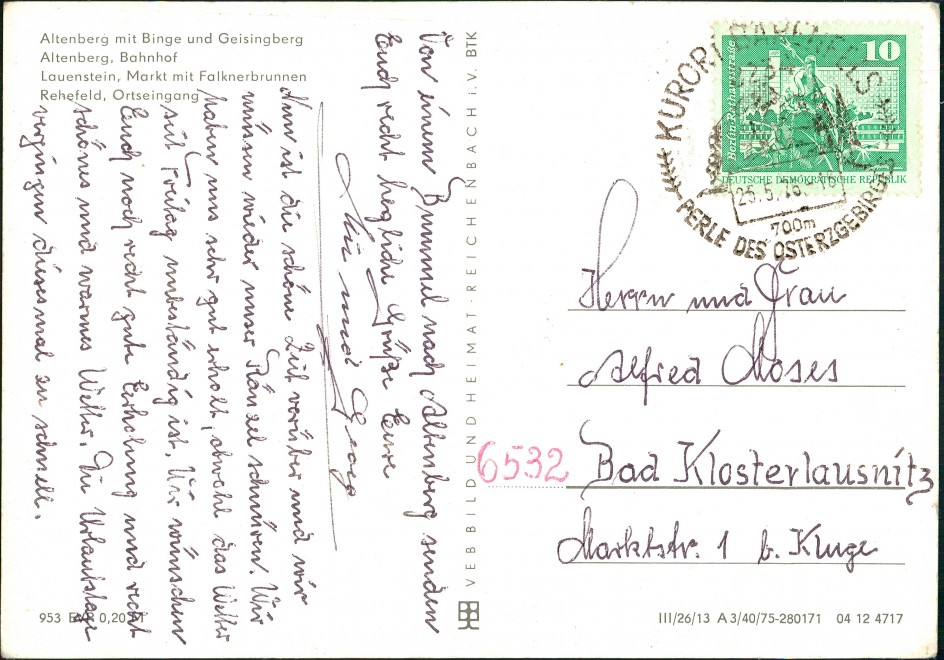 Altenberg mit Binge und Geisingberg
Altenberg, Bahnhof
Lauenstein, Markt mit Falknerbrunnen
Rehefeld, Ortseingang
Von einem Bummel nach Altenberg senden
Euch recht herzliche Grüße Eure
und Georg
Nun ist die schöne Zeit vorüber und wir
müssen wieder unser Ränzel schnüren. Wir
haben uns sehr gut erholt, obwohl das Wetter
seit Freitag unbeständig ist. Wir wünschen
Euch noch recht gute Erholung und recht
schönes und warmes Wetter. Die Urlaubstage
vergingen diesesmal zu schnell.
VEB BILD UND HEIMAT · REICHENBACH i. V. BTK
Berlin-Rathausstraße
10
DEUTSCHE DEMOKRATISCHE REPUBLIK
KURORT BÄRENFELS
700m
PERLE DES OSTERZGEBIRGES
Herrn und Frau
Alfred Moses
6532 Bad Klosterlausnitz
Marktstr. 1 b. Kluge
953 0,20 M
III/26/13 A 3/40/75-280171 04 12 4717